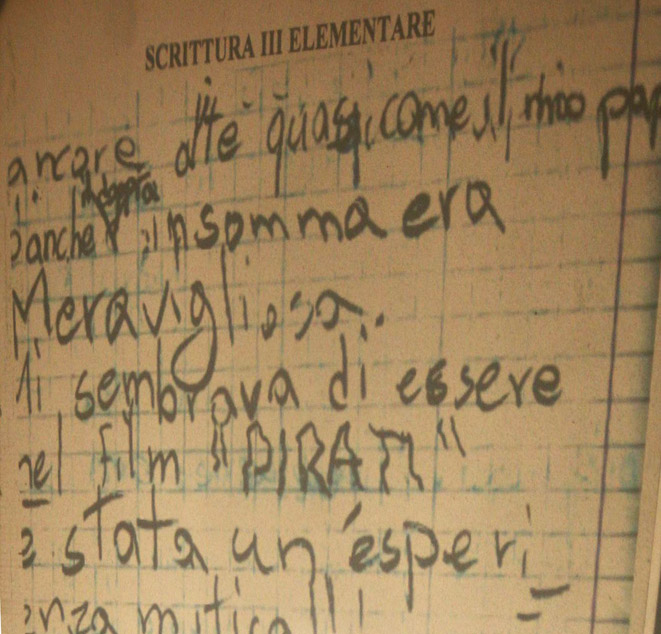 SCRITTURA III ELEMENTARE
ancore alte quasi come il mio pa
anche insomma era
Meravigliosa.
Mi sembrava di essere
nel film "PIRATI"
è stata un'esperi_
enza mitica!!!